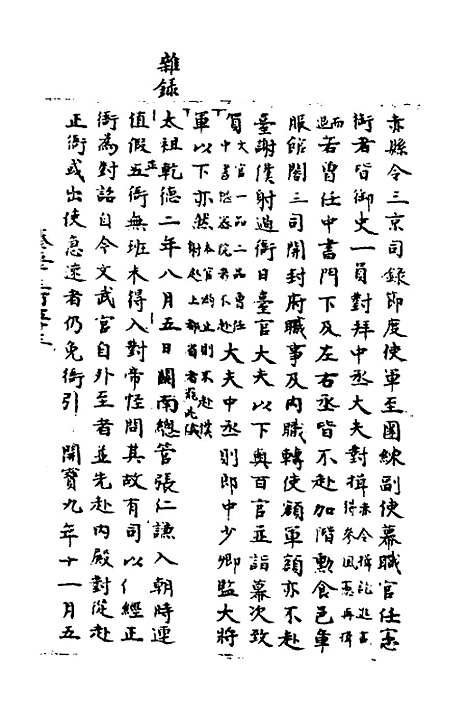 赤縣令三京司錄節度使軍至團練副使幕職官任憲
銜者皆御史一員對拜中丞大夫對揖赤令揖訖退直得參風憲再揖
而退若曾任中書門下及左右丞皆不赴加階勲食邑章
服館閣三司開封府職事及内職轉使額軍額亦不赴
臺謝僕射過衙日臺官大夫以下與百官並詣幕次致
賀文官一品二品曾任中書樞密院者不赴大夫中丞則郎中少卿監大將
軍以下亦然本官為止則不赴僕射赴上都省者罷此儀
雜錄
太祖乾德二年八月五日閬南總管張仁謙入朝時運
值假正五衙無班未得入對帝怪問其故有司以須經正
衙為對詔自今文武官自外至者並先赴内殿對從赴
正衙或出使急速者仍免衙引 開寶九年十一月五